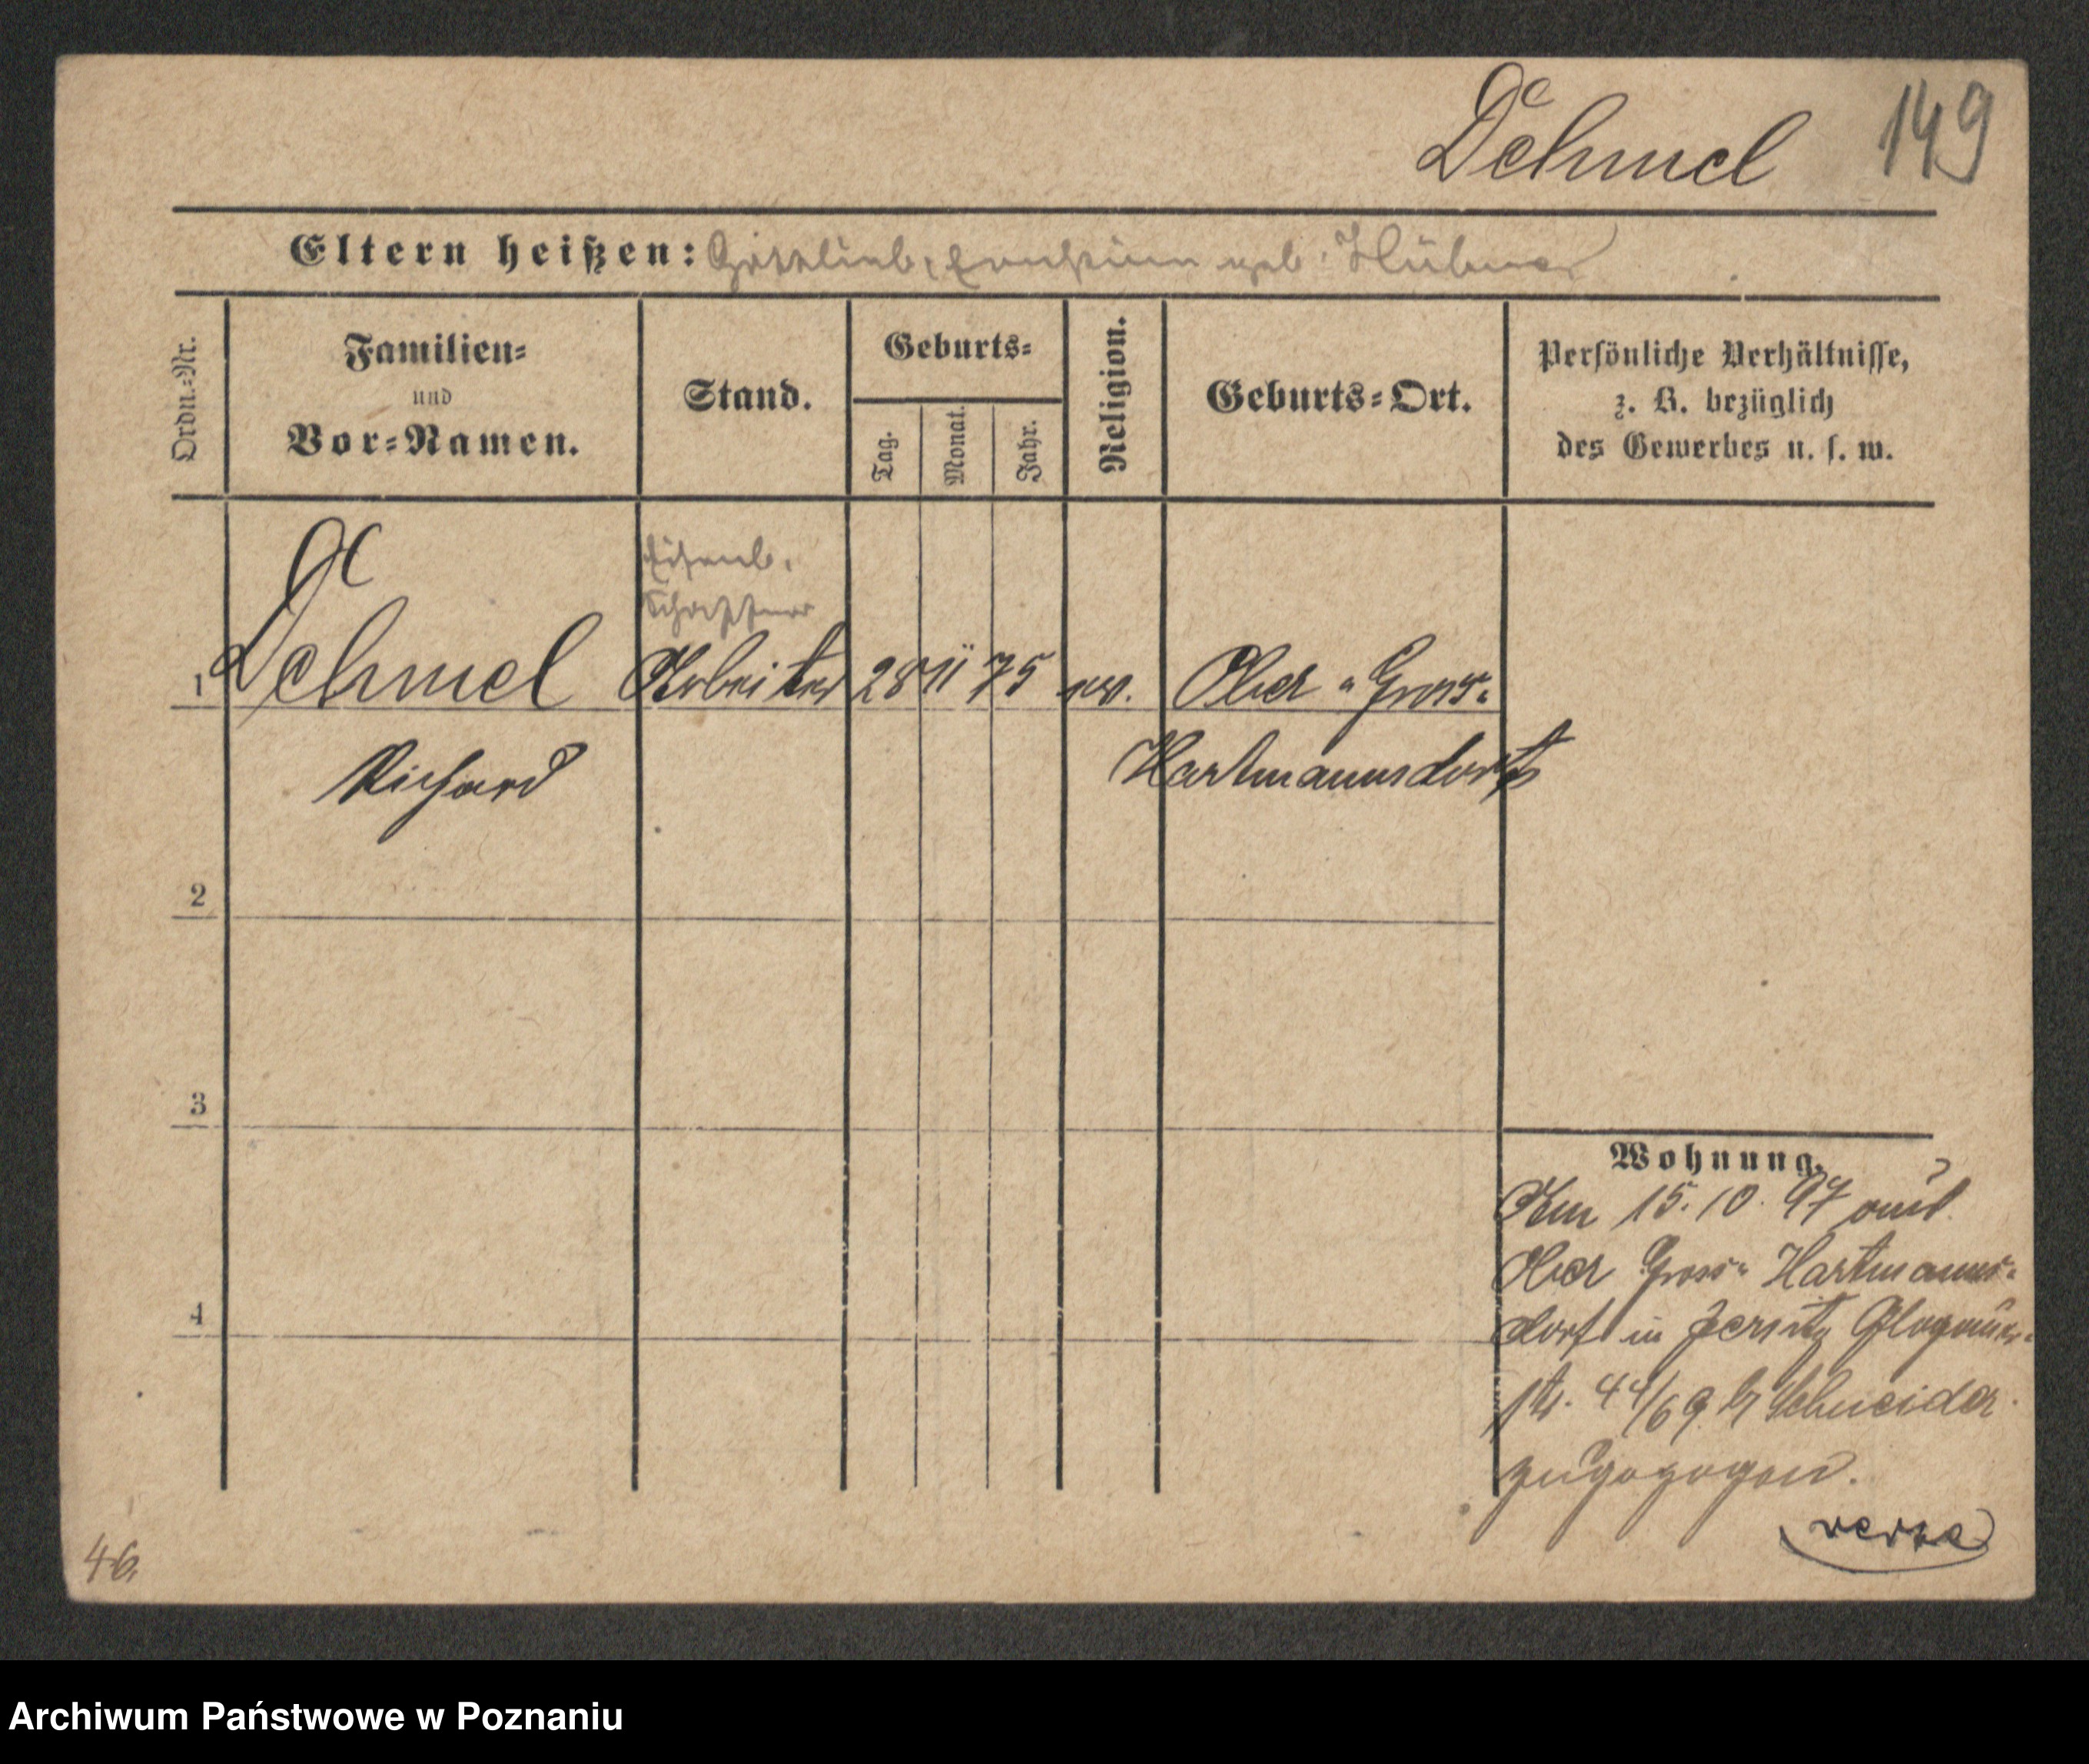 Dehmel 149
Eltern heißen: Gottlieb, Ernstine geb. Hübner
Ordn.-Nr.
Familien-
und
Vor-Namen.
Stand.
Geburts-
Tag.
Monat.
Jahr.
Religion.
Geburts-Ort.
Persönliche Verhältnisse,
z. B. bezüglich
des Gewerbes u. s. w.
Eisenb.
Schaffner
1 Dehmel Arbeiter 28 11 75 ev. Ober-Gross-
Richard Hartmannsdorf
2
3
4
Wohnung.
Am 15. 10. 97 aus
Ober Gross-Hartmanns-
dorf in Jersitz Glogauer-
str. 44/69 b Schneider
zugezogen.
verte
46.
Archiwum Państwowe w Poznaniu